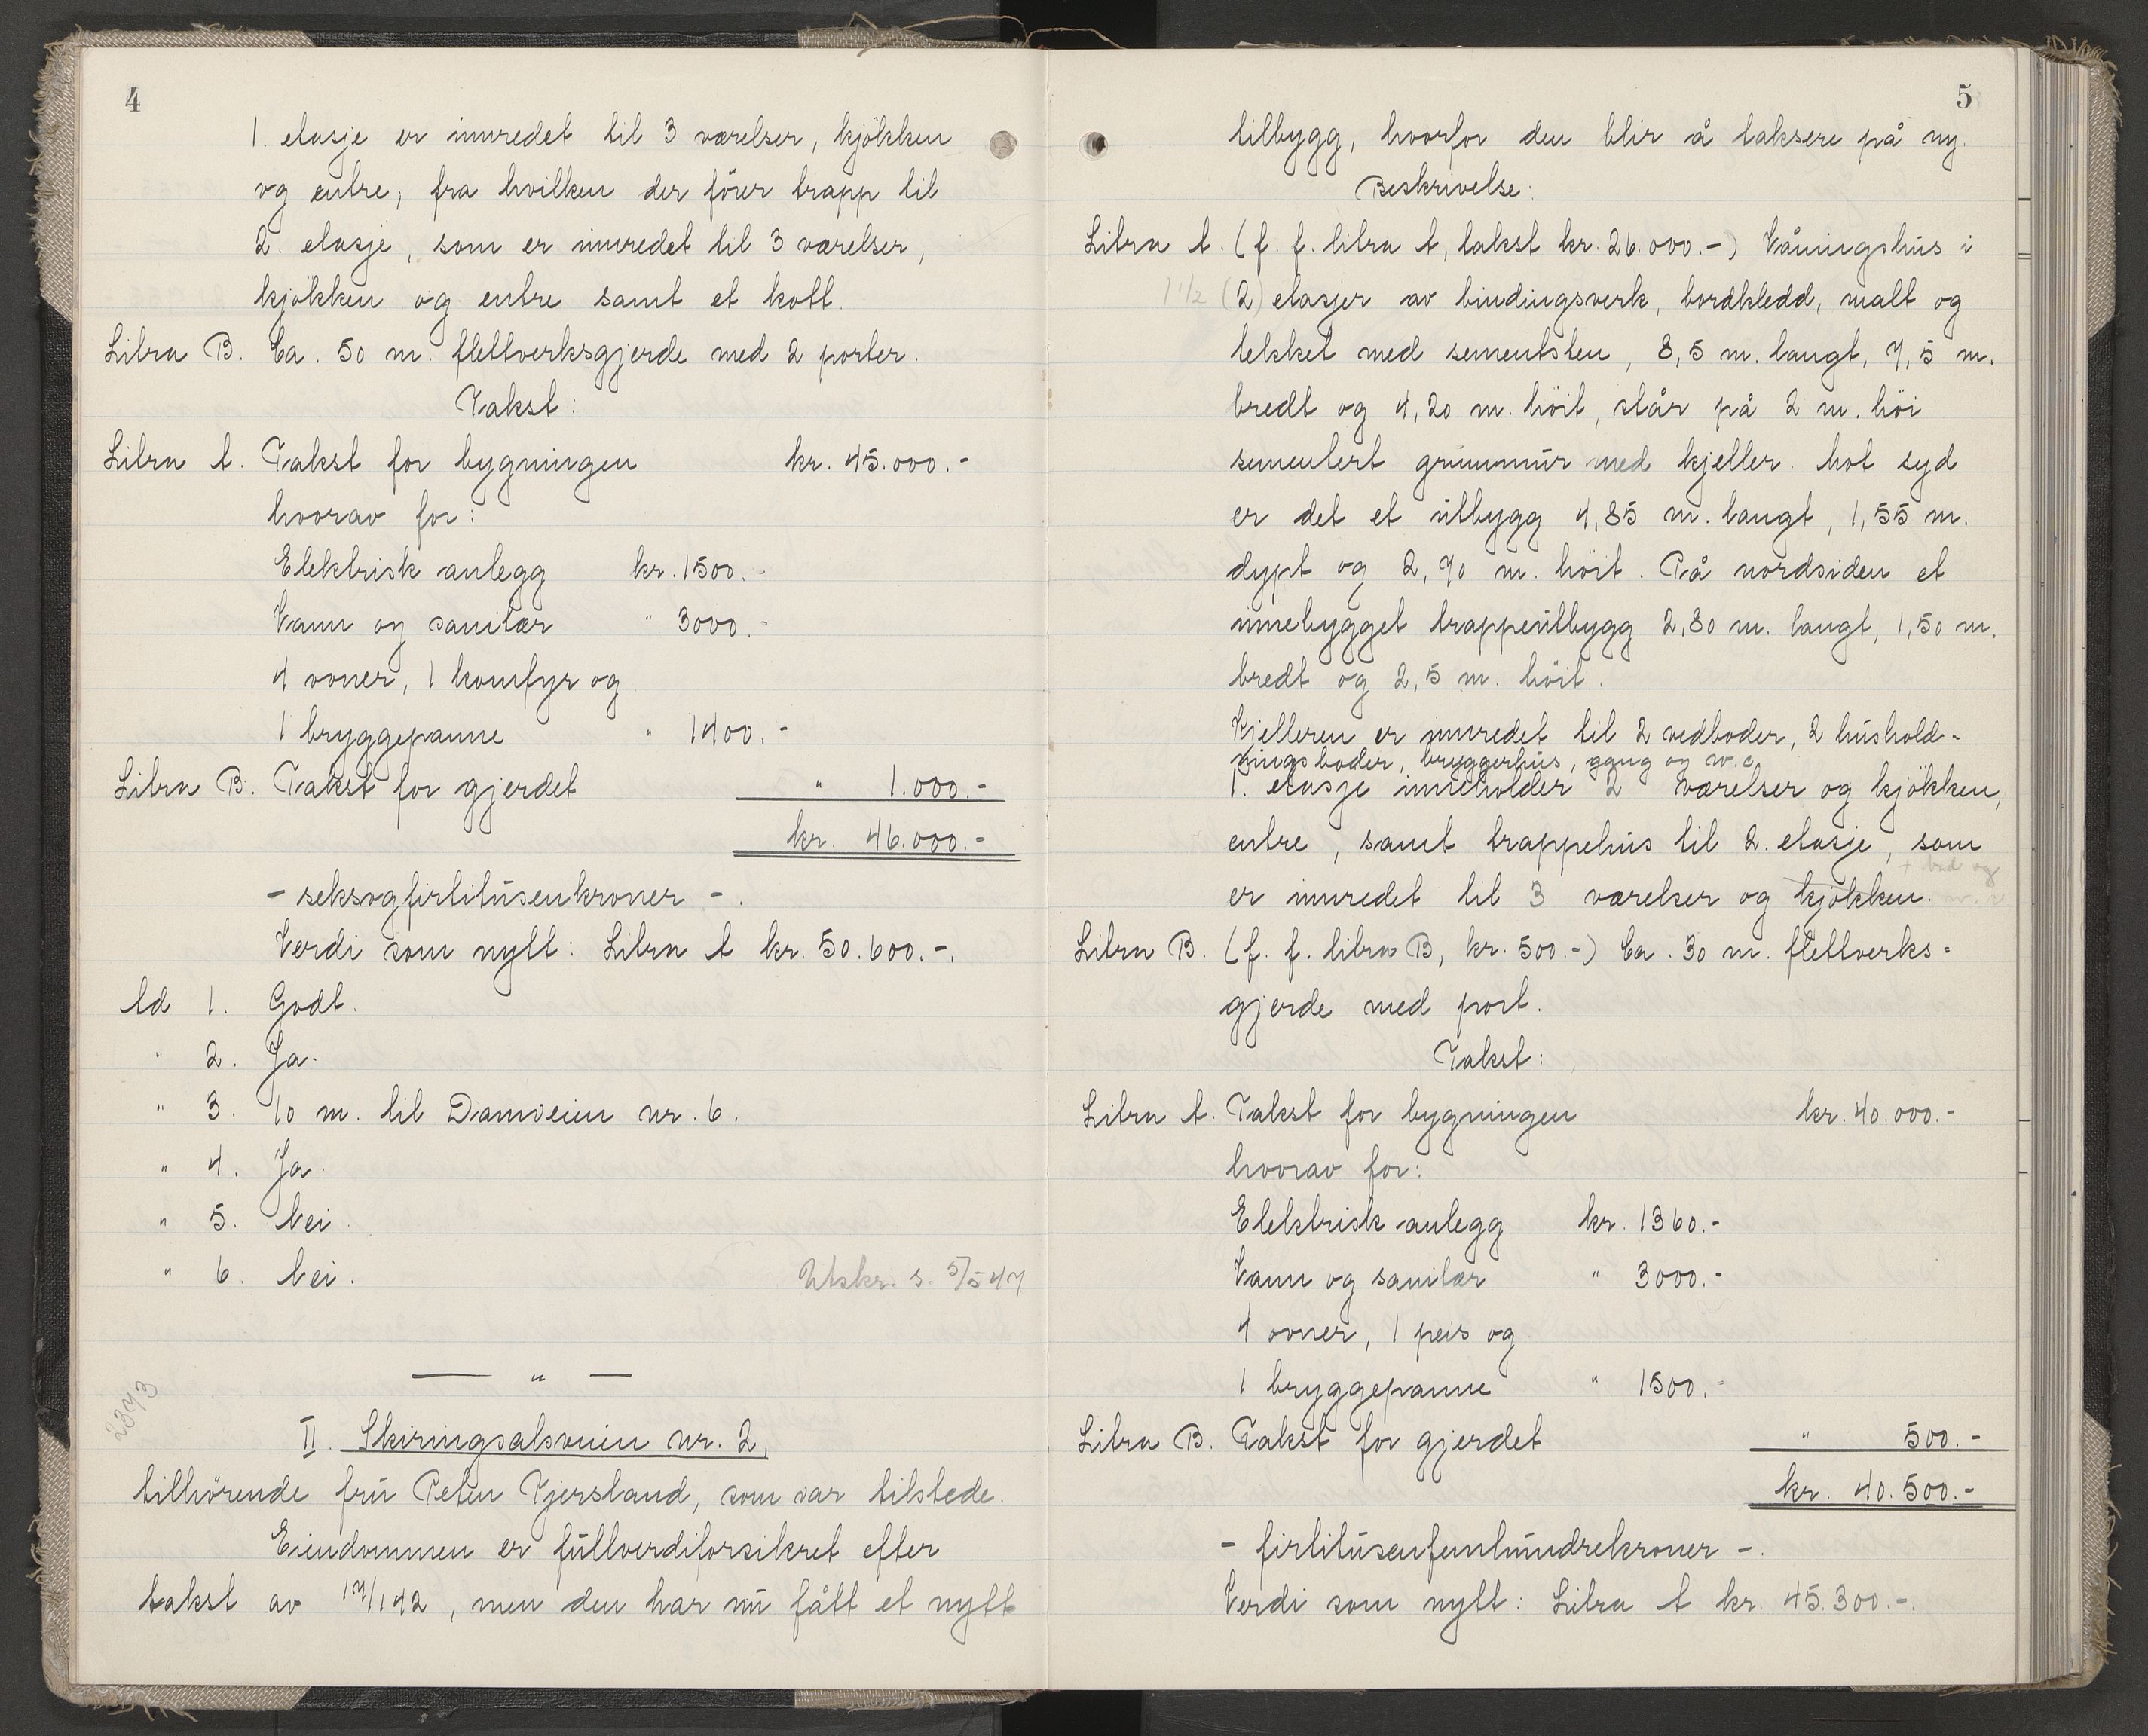 4
1. etasje er innredet til 3 værelser, kjökken
og entre, fra hvilken der förer trapp til
2. etasje, som er innredet til 3 værelser,
kjökken og entre samt et kott.
Litra B. Ca. 50 m. flettverksgjerde med 2 porter.
Takst:
Litra A. Takst for bygningen kr. 45.000.-
hvorav for:
Elektrisk anlegg kr. 1500.-
Vann og sanitær " 3000.-
4 ovner, 1 komfyr og
1 bryggepanne " 1400.-
Litra B. Takst for gjerdet " 1.000.-
kr. 46.000.-
- seksogfirtitusenkroner -.
Verdi som nytt: Litra A kr. 50.600.-.
Ad 1. Godt.
" 2. Ja.
" 3. 10 m. til Damveien nr. 6.
" 4. Ja.
" 5. Nei.
" 6. Nei.
Utskr. s. 5/5 47
— " —
2373
II. Skiringsalsveien nr. 2,
tilhörende fru Petra Tjersland, som var tilstede.
Eiendommen er fullverdiforsikret efter
takst av 17/1 42, men den har nu fått et nytt
5
tilbygg, hvorfor den blir å taksere på ny.
Beskrivelse:
Litra A. (f. f. litra A, takst kr. 26.000.-) Våningshus i
1 1/2 (2) etasjer av bindingsverk, bordkledd, malt og
tekket med sementsten, 8,5 m. langt, 7,5 m.
bredt og 4,20 m. höit, står på 2 m. höi
sementert grunnmur med kjeller. Mot syd
er det et utbygg 4,85 m. langt, 1,55 m.
dypt og 2,70 m. höit. På nordsiden et
innebygget trappeutbygg 2,80 m. langt, 1,50 m.
bredt og 2,5 m. höit.
Kjelleren er innredet til 2 vedboder, 2 hushold-
ningsboder, bryggerhus, gang og w.c.
1. etasje inneholder 2 værelser og kjökken,
entre, samt trappehus til 2. etasje, som
+ bad og
er innredet til 3 værelser og kjökken. w.c
Litra B. (f. f. litra B, kr. 500.-) Ca. 30 m. flettverks-
gjerde med port.
Takst:
Litra A. Takst for bygningen kr. 40.000.-
hvorav for:
Elektrisk anlegg kr. 1360.-
Vann og sanitær " 3000.-
4 ovner, 1 peis og
1 bryggepanne " 1500.-
Litra B. Takst for gjerdet " 500.-
kr. 40.500.-
- firtitusenfemhundrekroner -.
Verdi som nytt: Litra A kr. 45.300.-.